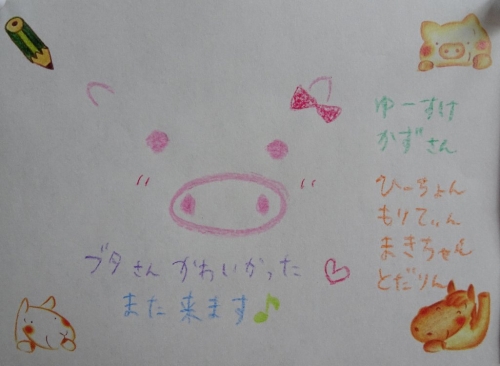 ゆーすけ
かずさん
ひーちょん
もりてぃん
まきちゃん
とだりん
ブタさん かわいかった♡
また来ます♪